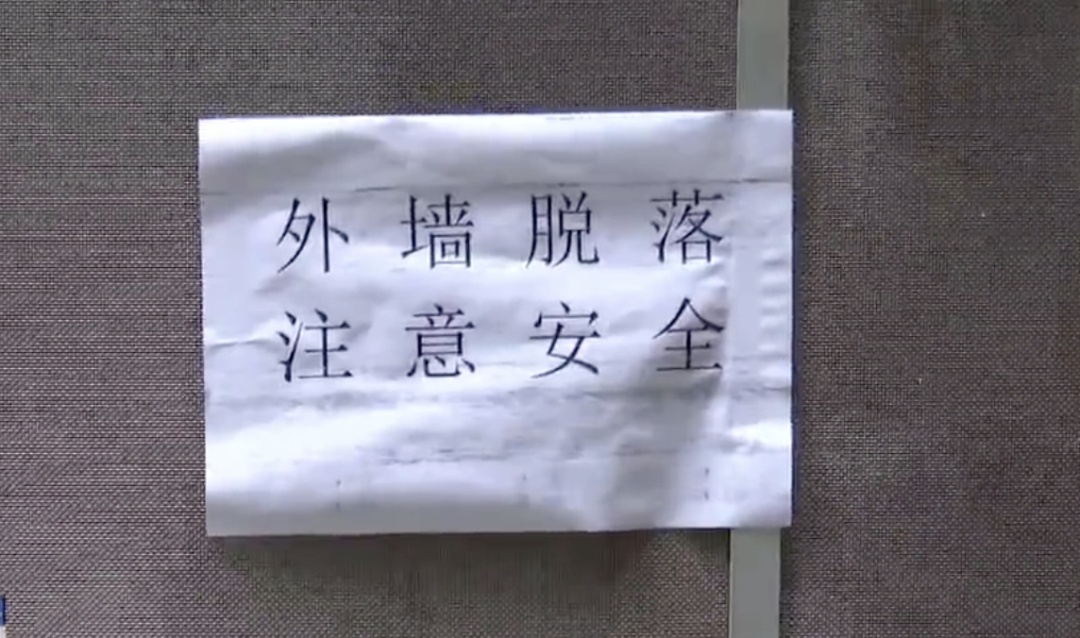 外墙脱落
注意安全